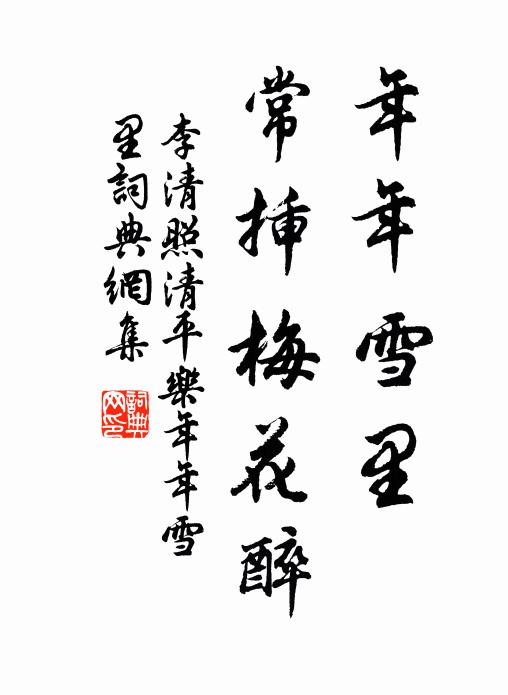 年年雪里
常插梅花醉
李清照清平樂年年雪
里詞典網集
詞典
网印